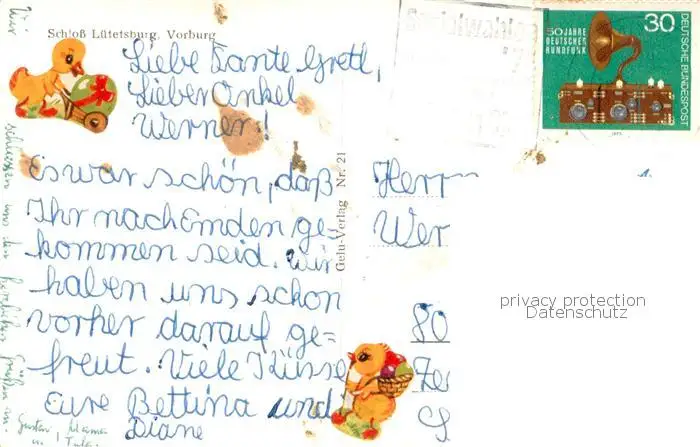 Schloß Lütetsburg, Vorburg
Liebe Tante Gretl,
Lieber Onkel
Werner!
Es war schön, daß
Ihr nach Emden ge=
kommen seid. Wir
haben uns schon
vorher darauf ge=
freut. Viele Küsse
Eure Bettina und
Diane
Wir
schliessen uns den herzlichen Grüßen an.
Gustav, Mama
Gelu-Verlag Nr. 21
30
50 JAHRE
DEUTSCHER
RUNDFUNK
DEUTSCHE BUNDESPOST
1973
Herr
Wer
80
privacy protection
Datenschutz